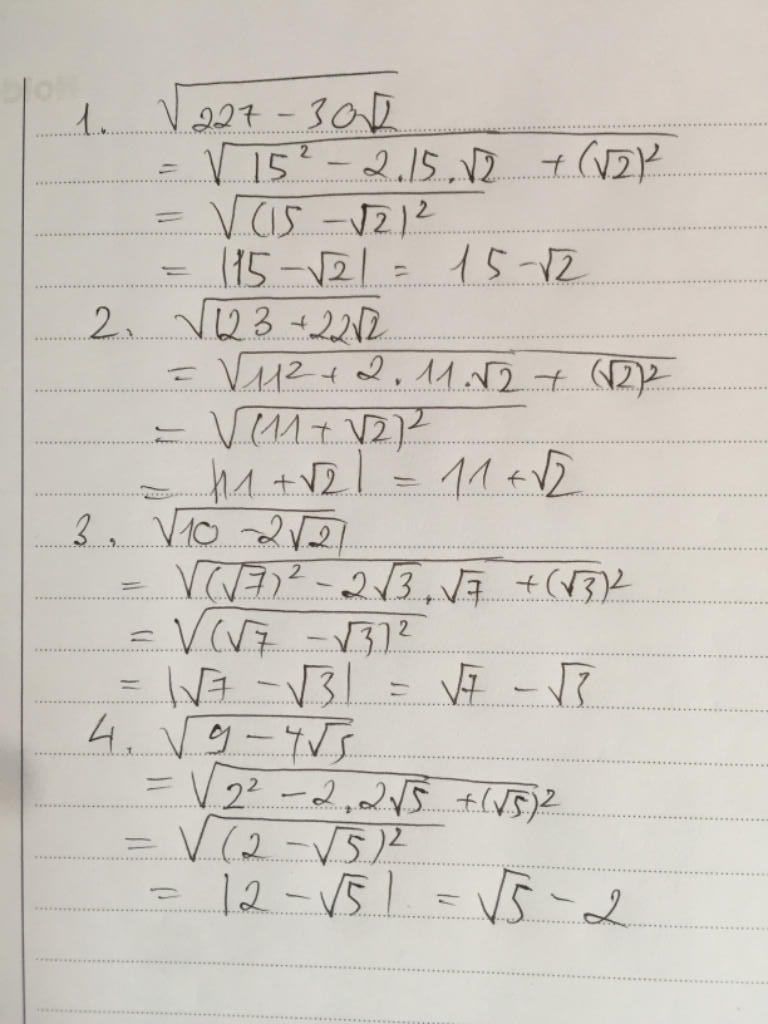 1. √(227 - 30√2)
= √(15² - 2.15.√2 + (√2)²)
= √((15 - √2)²)
= |15 - √2| = 15 - √2
2. √(123 + 22√2)
= √(11² + 2.11.√2 + (√2)²)
= √((11 + √2)²)
= |11 + √2| = 11 + √2
3. √(10 - 2√21)
= √((√7)² - 2√3.√7 + (√3)²)
= √((√7 - √3)²)
= |√7 - √3| = √7 - √3
4. √(9 - 4√5)
= √(2² - 2.2√5 + (√5)²)
= √((2 - √5)²)
= |2 - √5| = √5 - 2